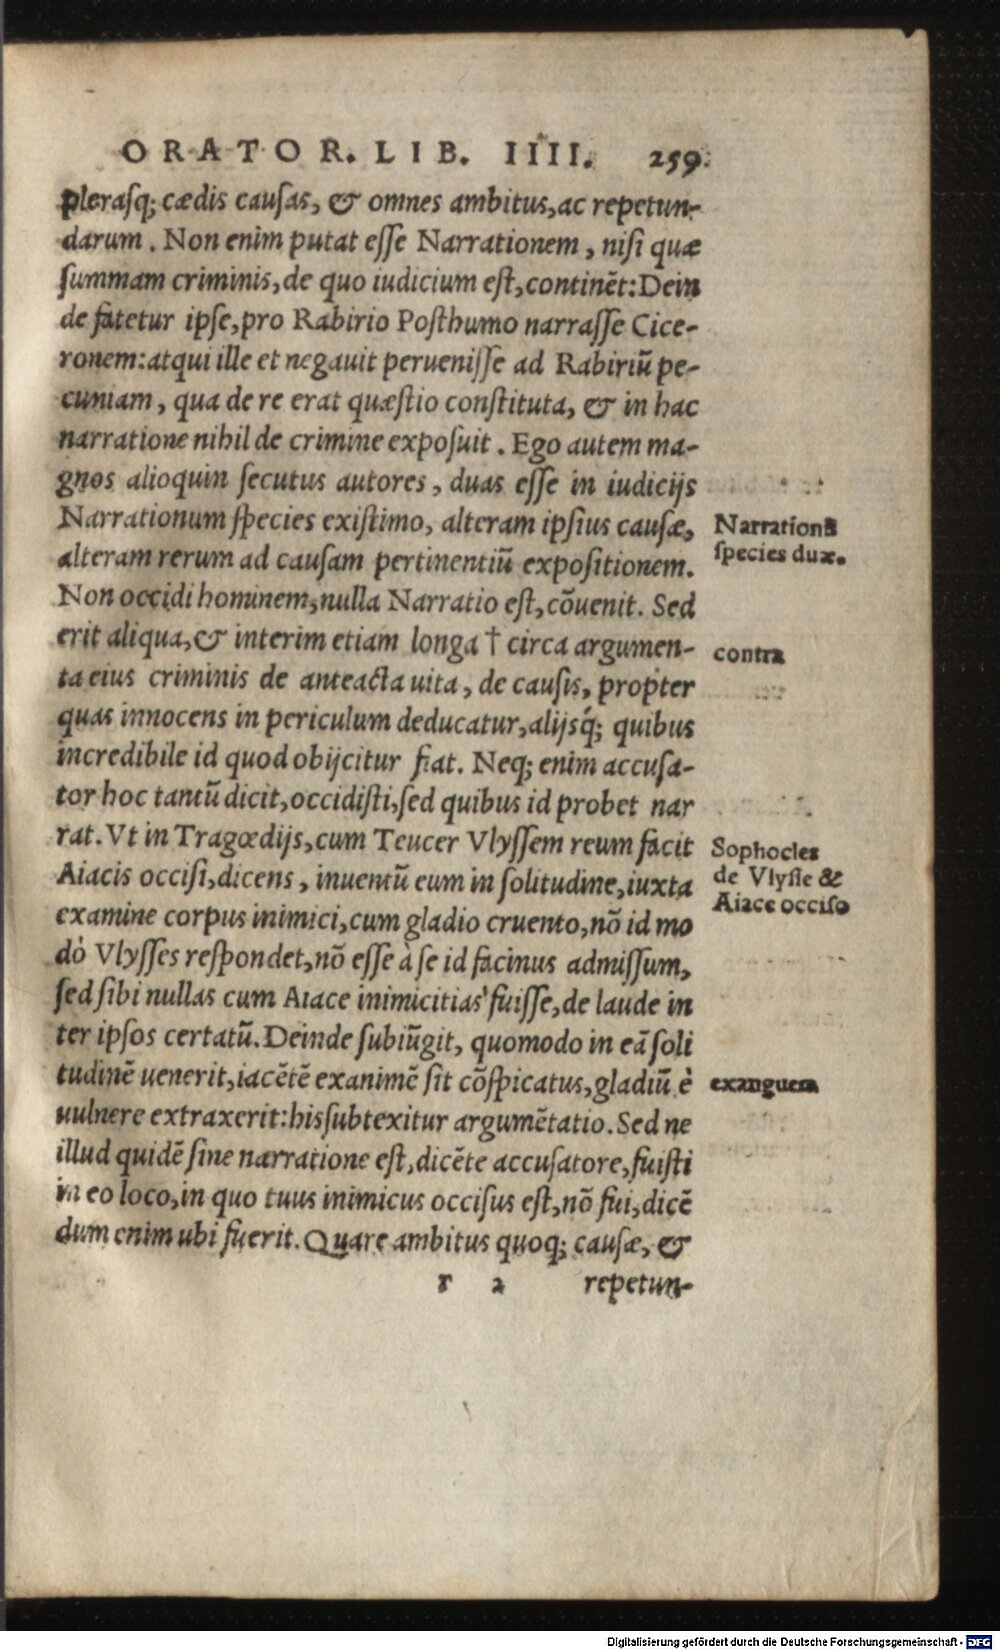 ORATOR. LIB. IIII. 259.
plerasq; cædis causas, & omnes ambitus, ac repetun-
darum. Non enim putat esse Narrationem, nisi quæ
summam criminis, de quo iudicium est, continēt: Dein
de fatetur ipse, pro Rabirio Posthumo narrasse Cice-
ronem: atqui ille et negauit peruenisse ad Rabiriū pe-
cuniam, qua de re erat quæstio constituta, & in hac
narratione nihil de crimine exposuit. Ego autem ma-
gnos alioquin secutus autores, duas esse in iudicijs
Narrationum species existimo, alteram ipsius causæ,
Narrationis
alteram rerum ad causam pertinentiū expositionem.
species duæ.
Non occidi hominem, nulla Narratio est, cōuenit. Sed
erit aliqua, & interim etiam longa † circa argumen-
contra
ta eius criminis de anteacta uita, de causis, propter
quas innocens in periculum deducatur, alijsq́; quibus
incredibile id quod obijcitur fiat. Neq; enim accusa-
tor hoc tantū dicit, occidisti, sed quibus id probet nar
rat. Vt in Tragœdijs, cum Teucer Vlyssem reum facit
Sophocles
Aiacis occisi, dicens, inuentū eum in solitudine, iuxta
de Vlysse &
examine corpus inimici, cum gladio cruento, nō id mo
Aiace occiso
dò Vlysses respondet, nō esse à se id facinus admissum,
sed sibi nullas cum Aiace inimicitias fuisse, de laude in
ter ipsos certatū. Deinde subiūgit, quomodo in eā soli
tudinē uenerit, iacētē exanimē sit cōspicatus, gladiū è
exanguem
uulnere extraxerit: his subtexitur argumētatio. Sed ne
illud quidē sine narratione est, dicēte accusatore, fuisti
in eo loco, in quo tuus inimicus occisus est, nō fui, dicē
dum enim ubi fuerit. Quare ambitus quoq; causæ, &
r 2 repetun-
Digitalisierung gefördert durch die Deutsche Forschungsgemeinschaft - DFG